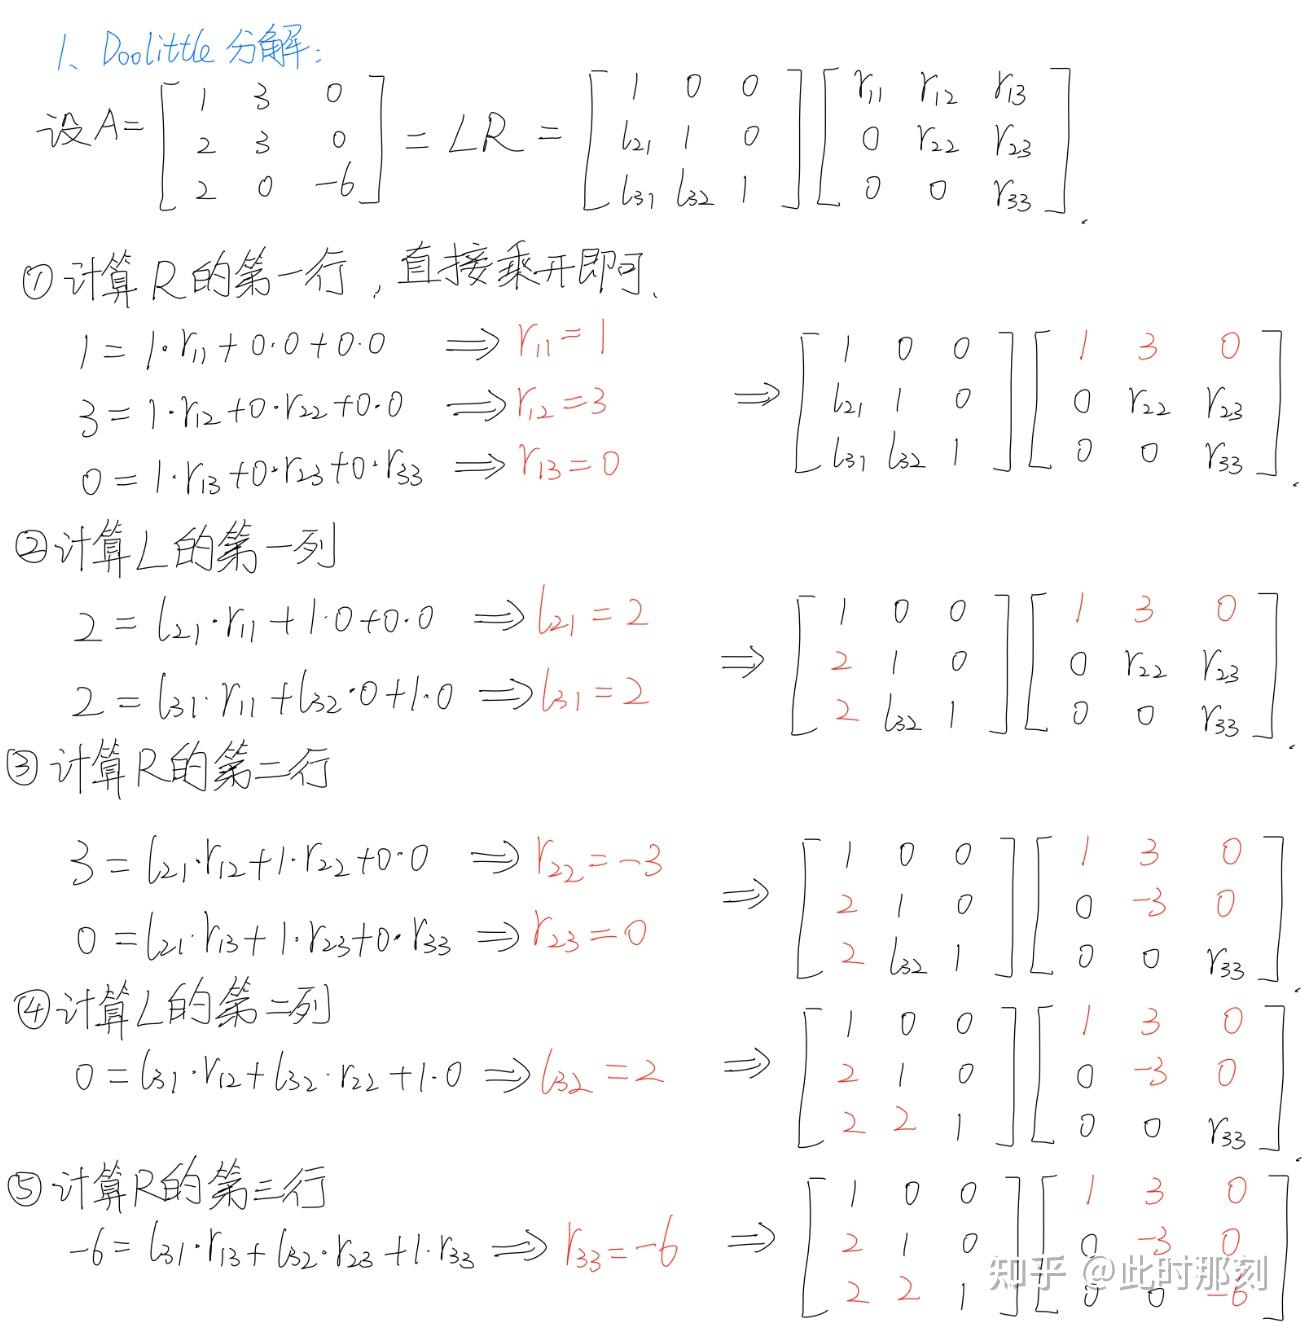 1、Doolittle 分解：
设A= [1 3 0; 2 3 0; 2 0 -6] = LR = [1 0 0; l₂₁ 1 0; l₃₁ l₃₂ 1] [r₁₁ r₁₂ r₁₃; 0 r₂₂ r₂₃; 0 0 r₃₃].
① 计算R的第一行，直接乘开即可、
1=1·r₁₁+0·0+0·0 ⟹ r₁₁=1
3=1·r₁₂+0·r₂₂+0·0 ⟹ r₁₂=3
0=1·r₁₃+0·r₂₃+0·r₃₃ ⟹ r₁₃=0
⟹ [1 0 0; l₂₁ 1 0; l₃₁ l₃₂ 1] [1 3 0; 0 r₂₂ r₂₃; 0 0 r₃₃].
② 计算L的第一列
2=l₂₁·r₁₁+1·0+0·0 ⟹ l₂₁=2
2=l₃₁·r₁₁+l₃₂·0+1·0 ⟹ l₃₁=2
⟹ [1 0 0; 2 1 0; 2 l₃₂ 1] [1 3 0; 0 r₂₂ r₂₃; 0 0 r₃₃].
③ 计算R的第二行
3=l₂₁·r₁₂+1·r₂₂+0·0 ⟹ r₂₂=-3
0=l₂₁·r₁₃+1·r₂₃+0·r₃₃ ⟹ r₂₃=0
⟹ [1 0 0; 2 1 0; 2 l₃₂ 1] [1 3 0; 0 -3 0; 0 0 r₃₃].
④ 计算L的第二列
0=l₃₁·r₁₂+l₃₂·r₂₂+1·0 ⟹ l₃₂=2
⟹ [1 0 0; 2 1 0; 2 2 1] [1 3 0; 0 -3 0; 0 0 r₃₃].
⑤ 计算R的第三行
-6=l₃₁·r₁₃+l₃₂·r₂₃+1·r₃₃ ⟹ r₃₃=-6
⟹ [1 0 0; 2 1 0; 2 2 1] [1 3 0; 0 -3 0; 0 0 -6]
知乎 @此时那刻